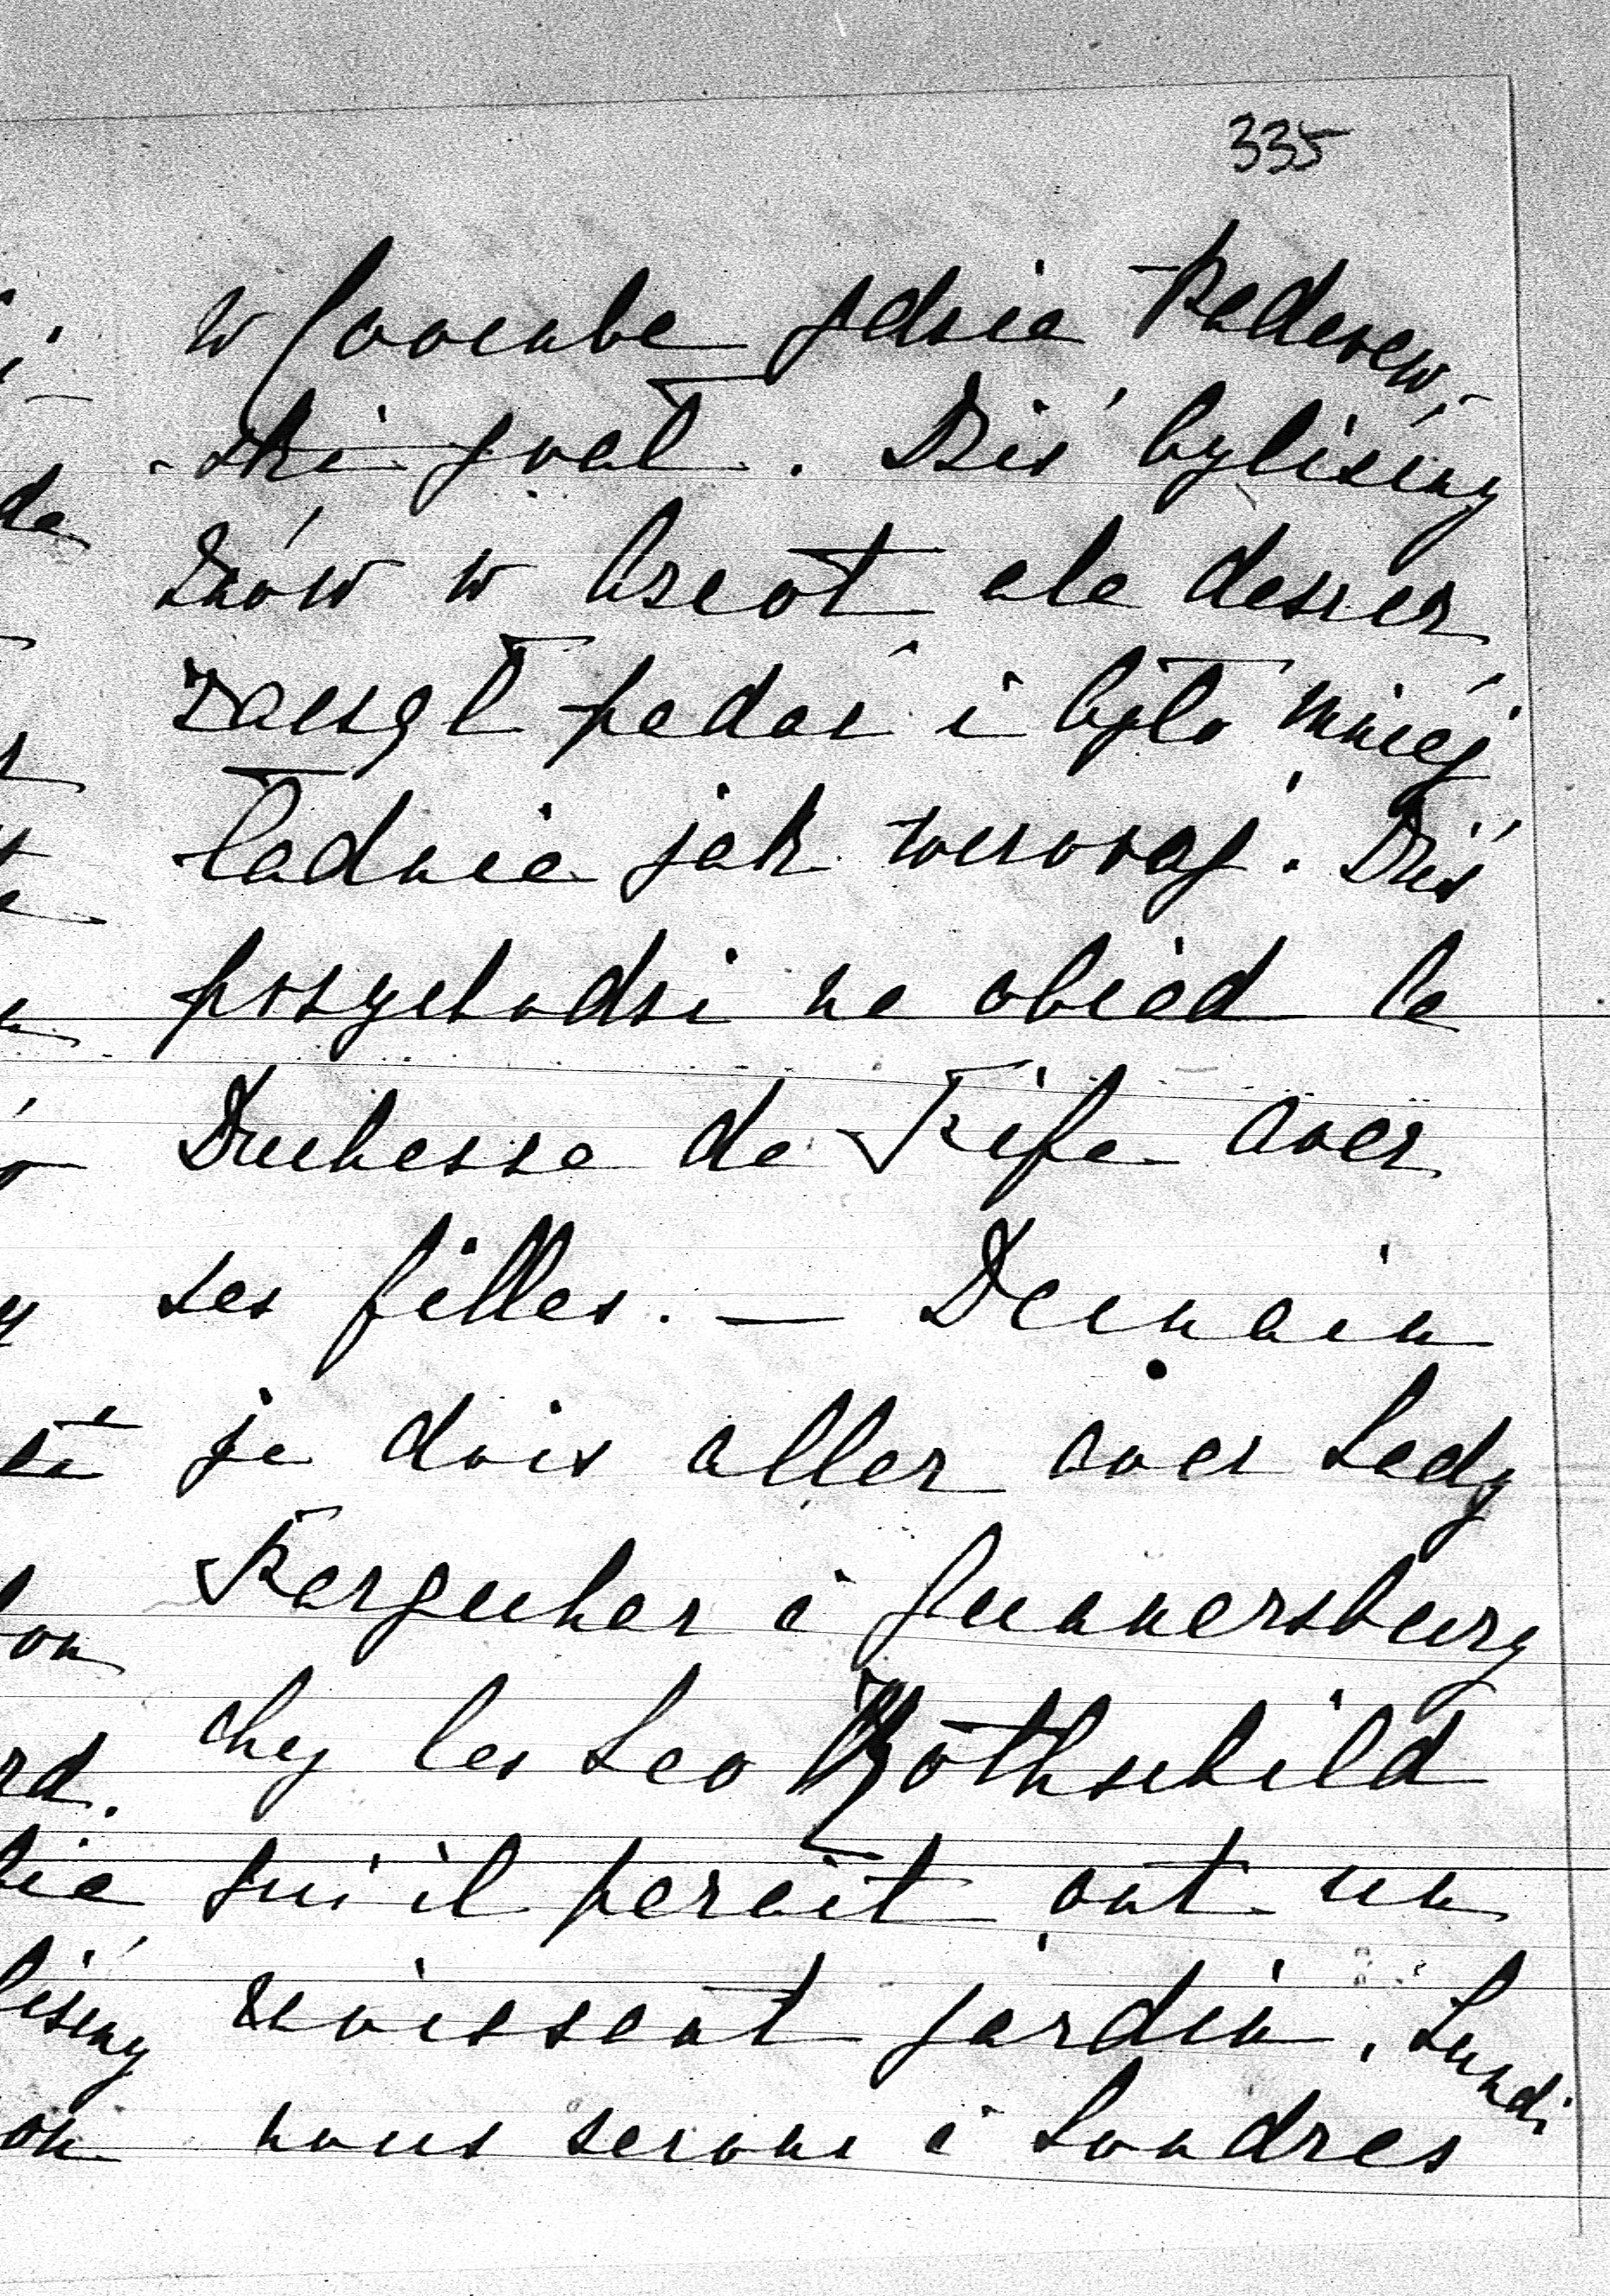 335
w Coombe gdzie Paderew-
-ski grał. Dziś byliśmy
znów w Ascot ale deszcz
zaczął padać i było mniej
ładnie jak wczoraj. Dziś
przychodzi na obiad la
Duchesse de Fife avec
ses filles. — Demain
je dois aller avec Lady
Farquhar à Gunnersbury
chez les Leo Rothschild
qui il parait ont un
ravissant jardin. Lundi
nous serons à Londres